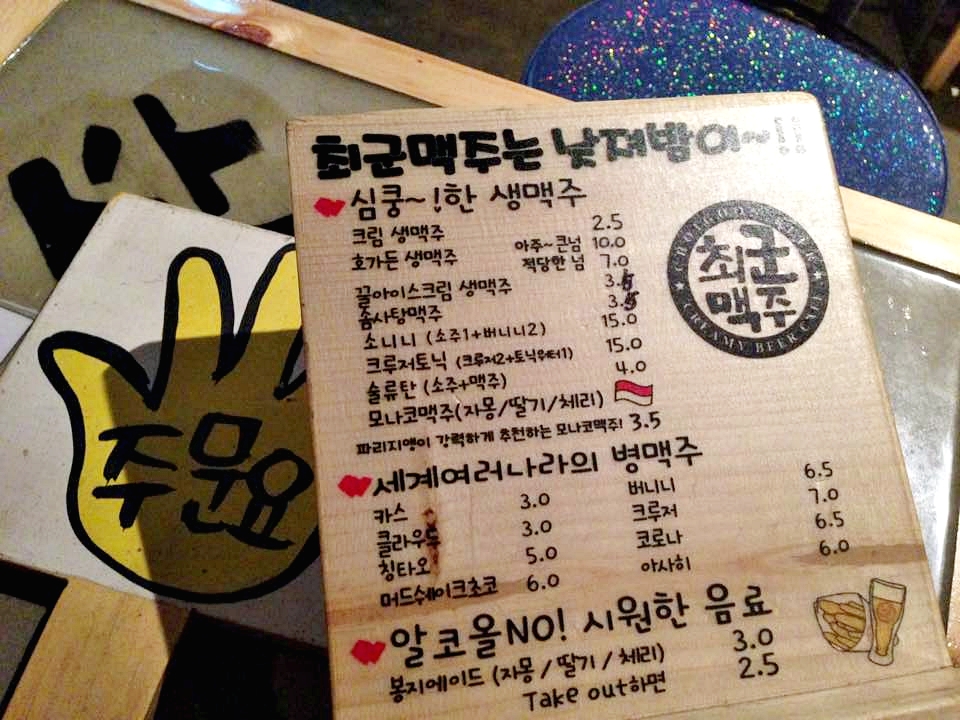 최군맥주는 낮져밤이~!!
심쿵~!한 생맥주
크림 생맥주 2.5
호가든 생맥주 아주~큰넘 10.0
적당한 넘 7.0
꿀아이스크림 생맥주 3.5
솜사탕맥주 3.5
소니니 (소주1+버니니2) 15.0
크루저토닉 (크루저2+토닉워터1) 15.0
술류탄 (소주+맥주) 4.0
모나코맥주(자몽/딸기/체리)
파리지앵이 강력하게 추천하는 모나코맥주! 3.5
세계여러나라의 병맥주
카스 3.0
클라우드 3.0
칭타오 5.0
머드쉐이크초코 6.0
버니니 6.5
크루저 7.0
코로나 6.5
아사히 6.0
알코올NO! 시원한 음료
봉지에이드 (자몽 / 딸기 / 체리) 3.0
Take out하면 2.5
최군
맥주
CREAMY BEER
주문요